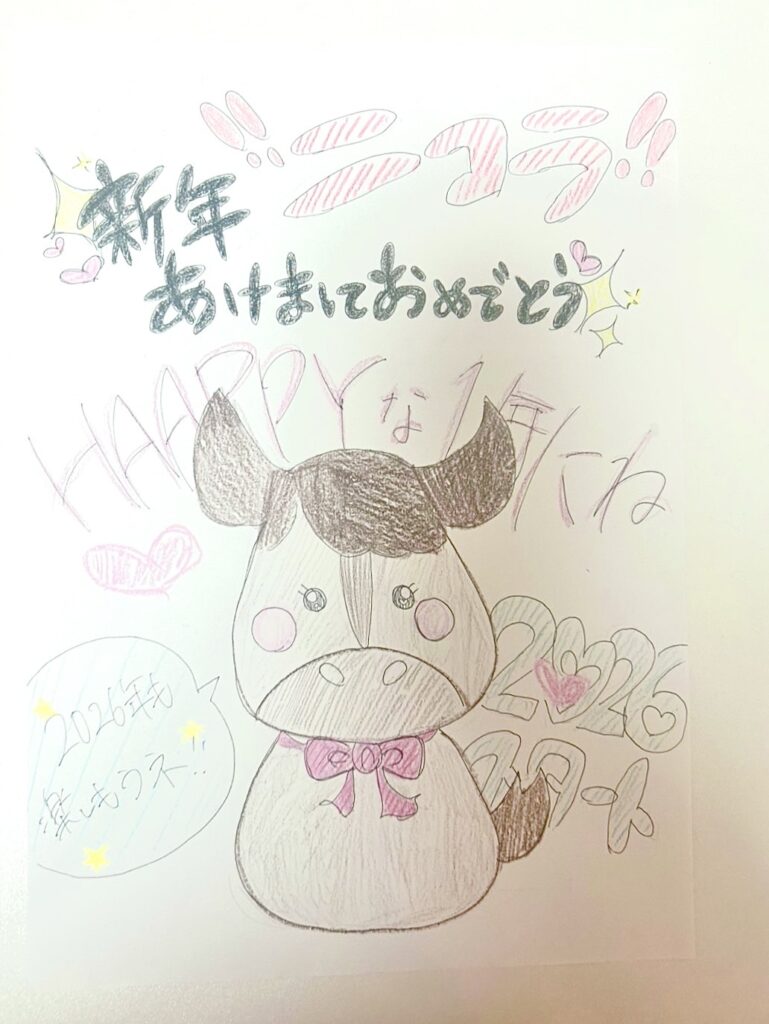 !!ニコラ!!
新年
あけましておめでとう
HAPPYな1年にね
2026
スタート
2026年も
楽しもうネ!!